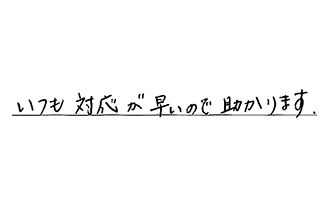 いつも対応が早いので助かります.